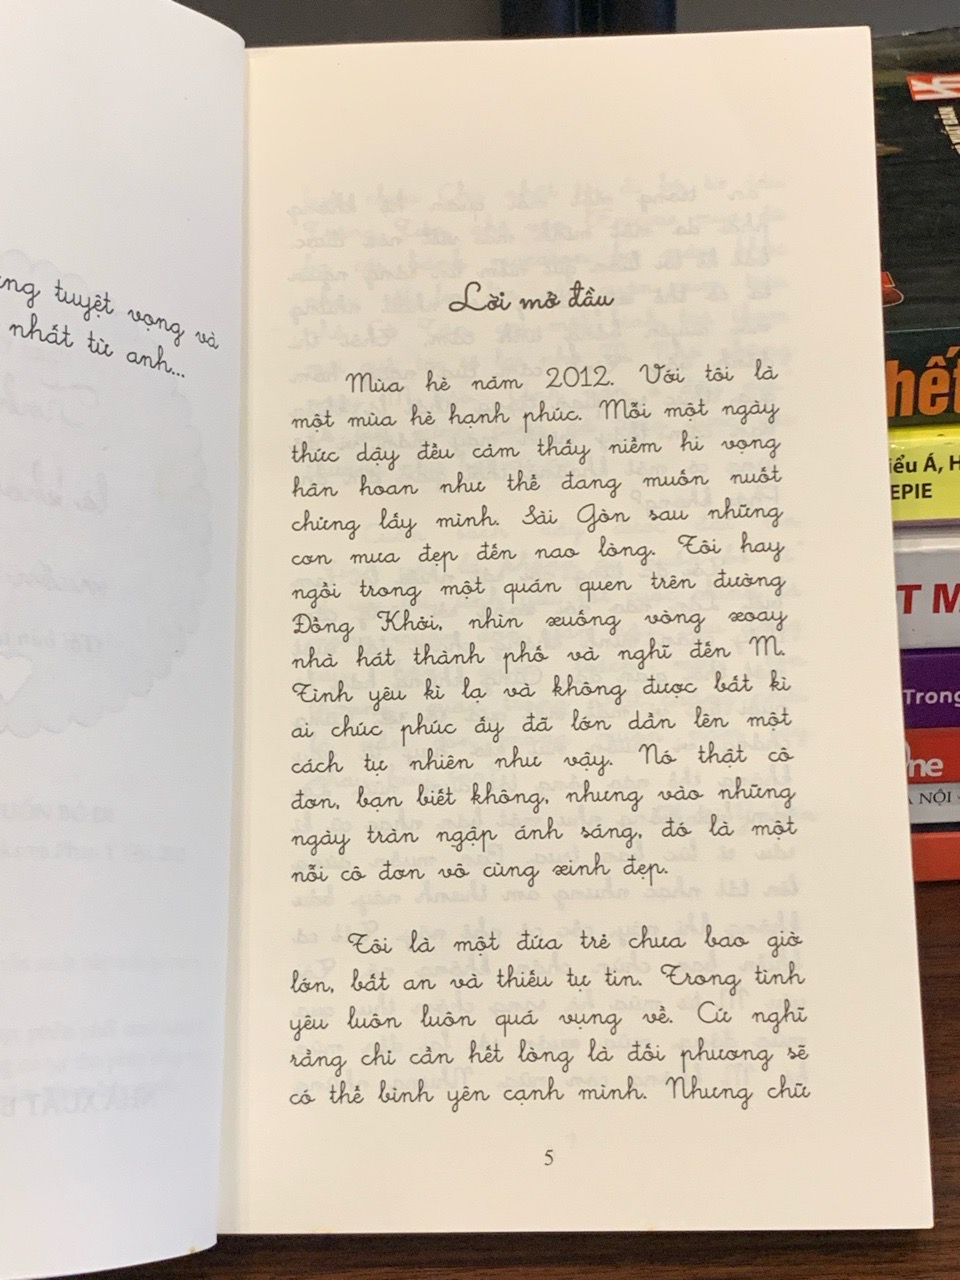 ng tuyệt vọng và
nhất từ anh...
Lời mở đầu
Mùa hè năm 2012. Với tôi là
một mùa hè hạnh phúc. Mỗi một ngày
thức dậy đều cảm thấy niềm hi vọng
hân hoan như thể đang muốn nuốt
chửng lấy mình. Sài Gòn sau những
cơn mưa đẹp đến nao lòng. Tôi hay
ngồi trong một quán quen trên đường
Đồng Khởi, nhìn xuống vòng xoay
nhà hát thành phố và nghĩ đến M.
Tình yêu kì lạ và không được bất kì
ai chúc phúc ấy đã lớn dần lên một
cách tự nhiên như vậy. Nó thật cô
đơn, bạn biết không, nhưng vào những
ngày tràn ngập ánh sáng, đó là một
nỗi cô đơn vô cùng xinh đẹp.
Tôi là một đứa trẻ chưa bao giờ
lớn, bất an và thiếu tự tin. Trong tình
yêu luôn luôn quá vụng về. Cứ nghĩ
rằng chỉ cần hết lòng là đối phương sẽ
có thể bình yên cạnh mình. Nhưng chữ
5
hết
iểu Á, H
EPIE
T M
Trong
ne
À NỘI